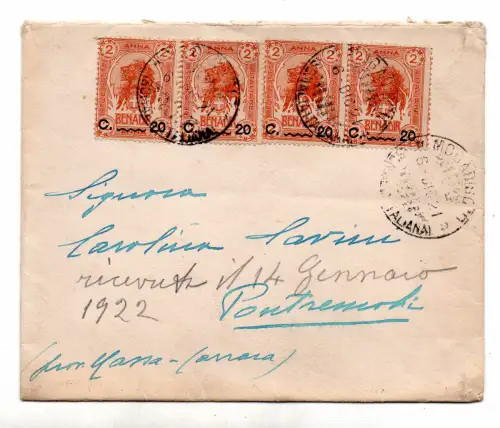 2 ANNA 2 2 ANNA 2 2 ANNA 2 2 ANNA 2
BENADIR BENADIR BENADIR BENADIR
C. 20 C. 20 C. 20 C. 20
MOGADISCIO
ITALIANA)
Signora
Carolina Savini
ricevuta il 14 Gennaio
1922
Pontremoli
(prov. Massa-Carrara)